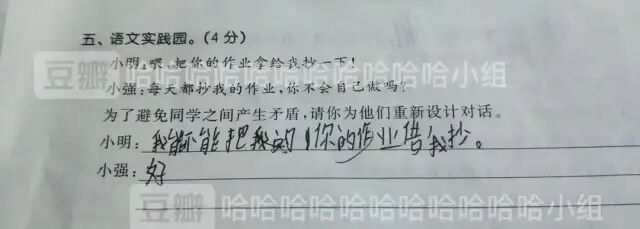 五、语文实践园。(4分)
小明:喂,把你的作业拿给我抄一下!
小强:每天都抄我的作业,你不会自己做吗?
为了避免同学之间产生矛盾,请你为他们重新设计对话。
小明:我能不能把你的作业借我抄。
小强:好
豆瓣 哈哈哈哈哈哈哈哈哈哈小组
豆瓣 哈哈哈哈哈哈哈哈哈哈小组